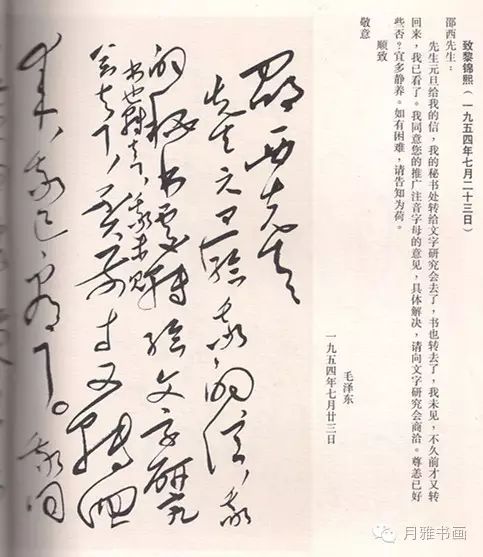 致黎锦熙(一九五四年七月二十三日)
邵西先生:
先生元旦给我的信,我的秘书处转给文字研究会去了,书也转去了,我未见,不久前才又转
回来,我已看了。我同意您的推广注音字母的意见,具体解决,请向文字研究会商洽。尊恙已好
些否?宜多静养。如有困难,请告知为荷。
顺致
敬意
毛泽东
一九五四年七月廿三日
邵西先生
先生元旦给我的信,我
的秘书处转给文字研究
会去了,书也转去了,我未见,
不久前才又转回
来,我已看了。我同
月雅书画